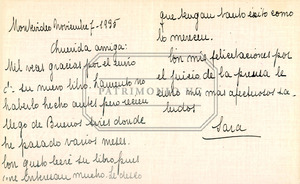 Montevideo Noviembre 7 - 1995
Querida amiga:
Mil veces gracias por el envío
de su nuevo libro. Lamento no
haberlo hecho antes pero recién
llego de Buenos Aires donde
he pasado varios meses.
Con gusto leeré su libro pues
me interesan mucho. Le deseo
que tengan tanto éxito como
lo merecen.
Con mis felicitaciones por
el juicio de la prensa le
envío mis más afectuosos sa-
ludos
Sara
PATRIMONIO